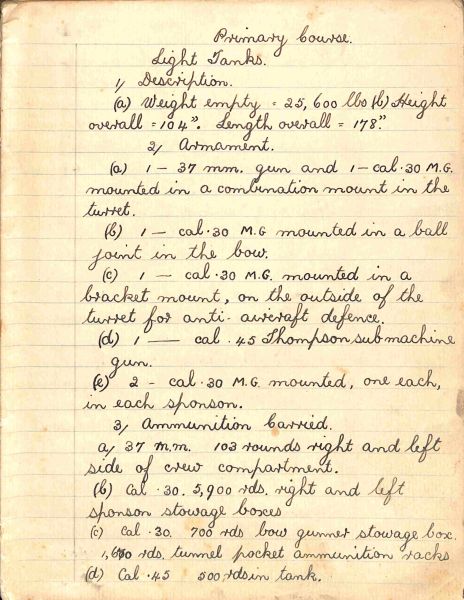 Primary Course.
Light Tanks.
1/ Description.
(a) Weight empty = 25,600 lbs (b) Height
overall = 104". Length overall = 178".
2/ Armament.
(a) 1 - 37 mm. gun and 1 - cal .30 M.G.
mounted in a combination mount in the
turret.
(b) 1 — cal .30 M.G mounted in a ball
joint in the bow.
(c) 1 — cal .30 M.G. mounted in a
bracket mount, on the outside of the
turret for anti-aircraft defence.
(d) 1 — cal .45 Thompson submachine
gun.
(e) 2 - cal .30 M.G. mounted, one each,
in each sponson.
3/ Ammunition Carried.
a/ 37 m.m. 103 rounds right and left
side of crew compartment.
(b) Cal .30. 5,900 rds. right and left
sponson stowage boxes
(c) Cal .30. 700 rds bow gunner stowage box.
rds. tunnel pocket ammunition racks
(d) Cal .45 500 rds in tank.